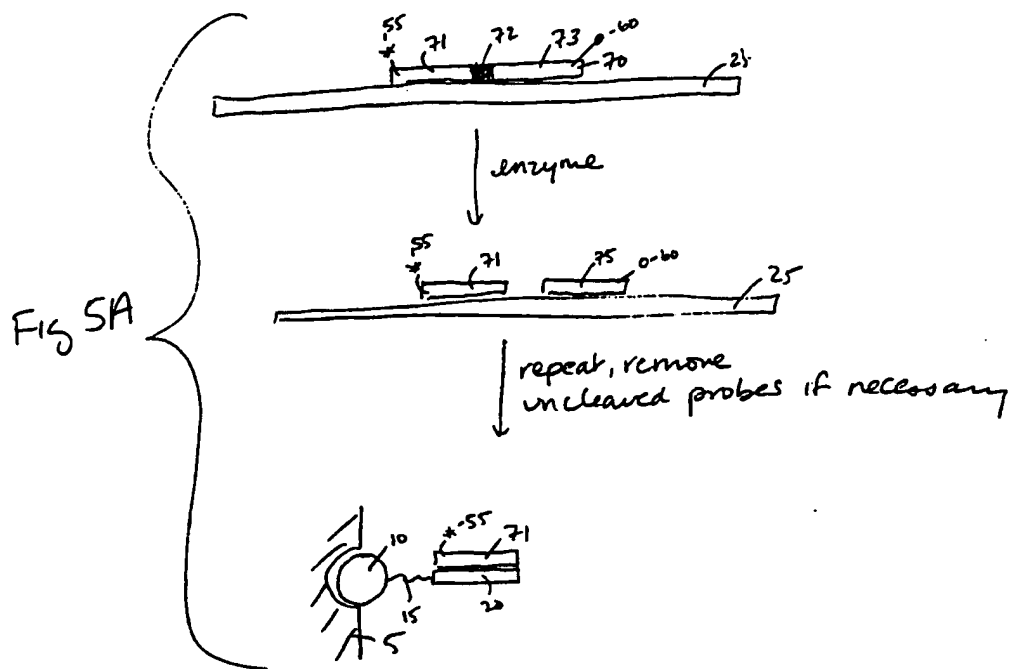 -55
*
71
72
73
-60
70
25
enzyme
55
*
71
75
0-60
25
Fig 5A
repeat, remove
uncleaved probes if necessary
10
*-55
71
15
20
5